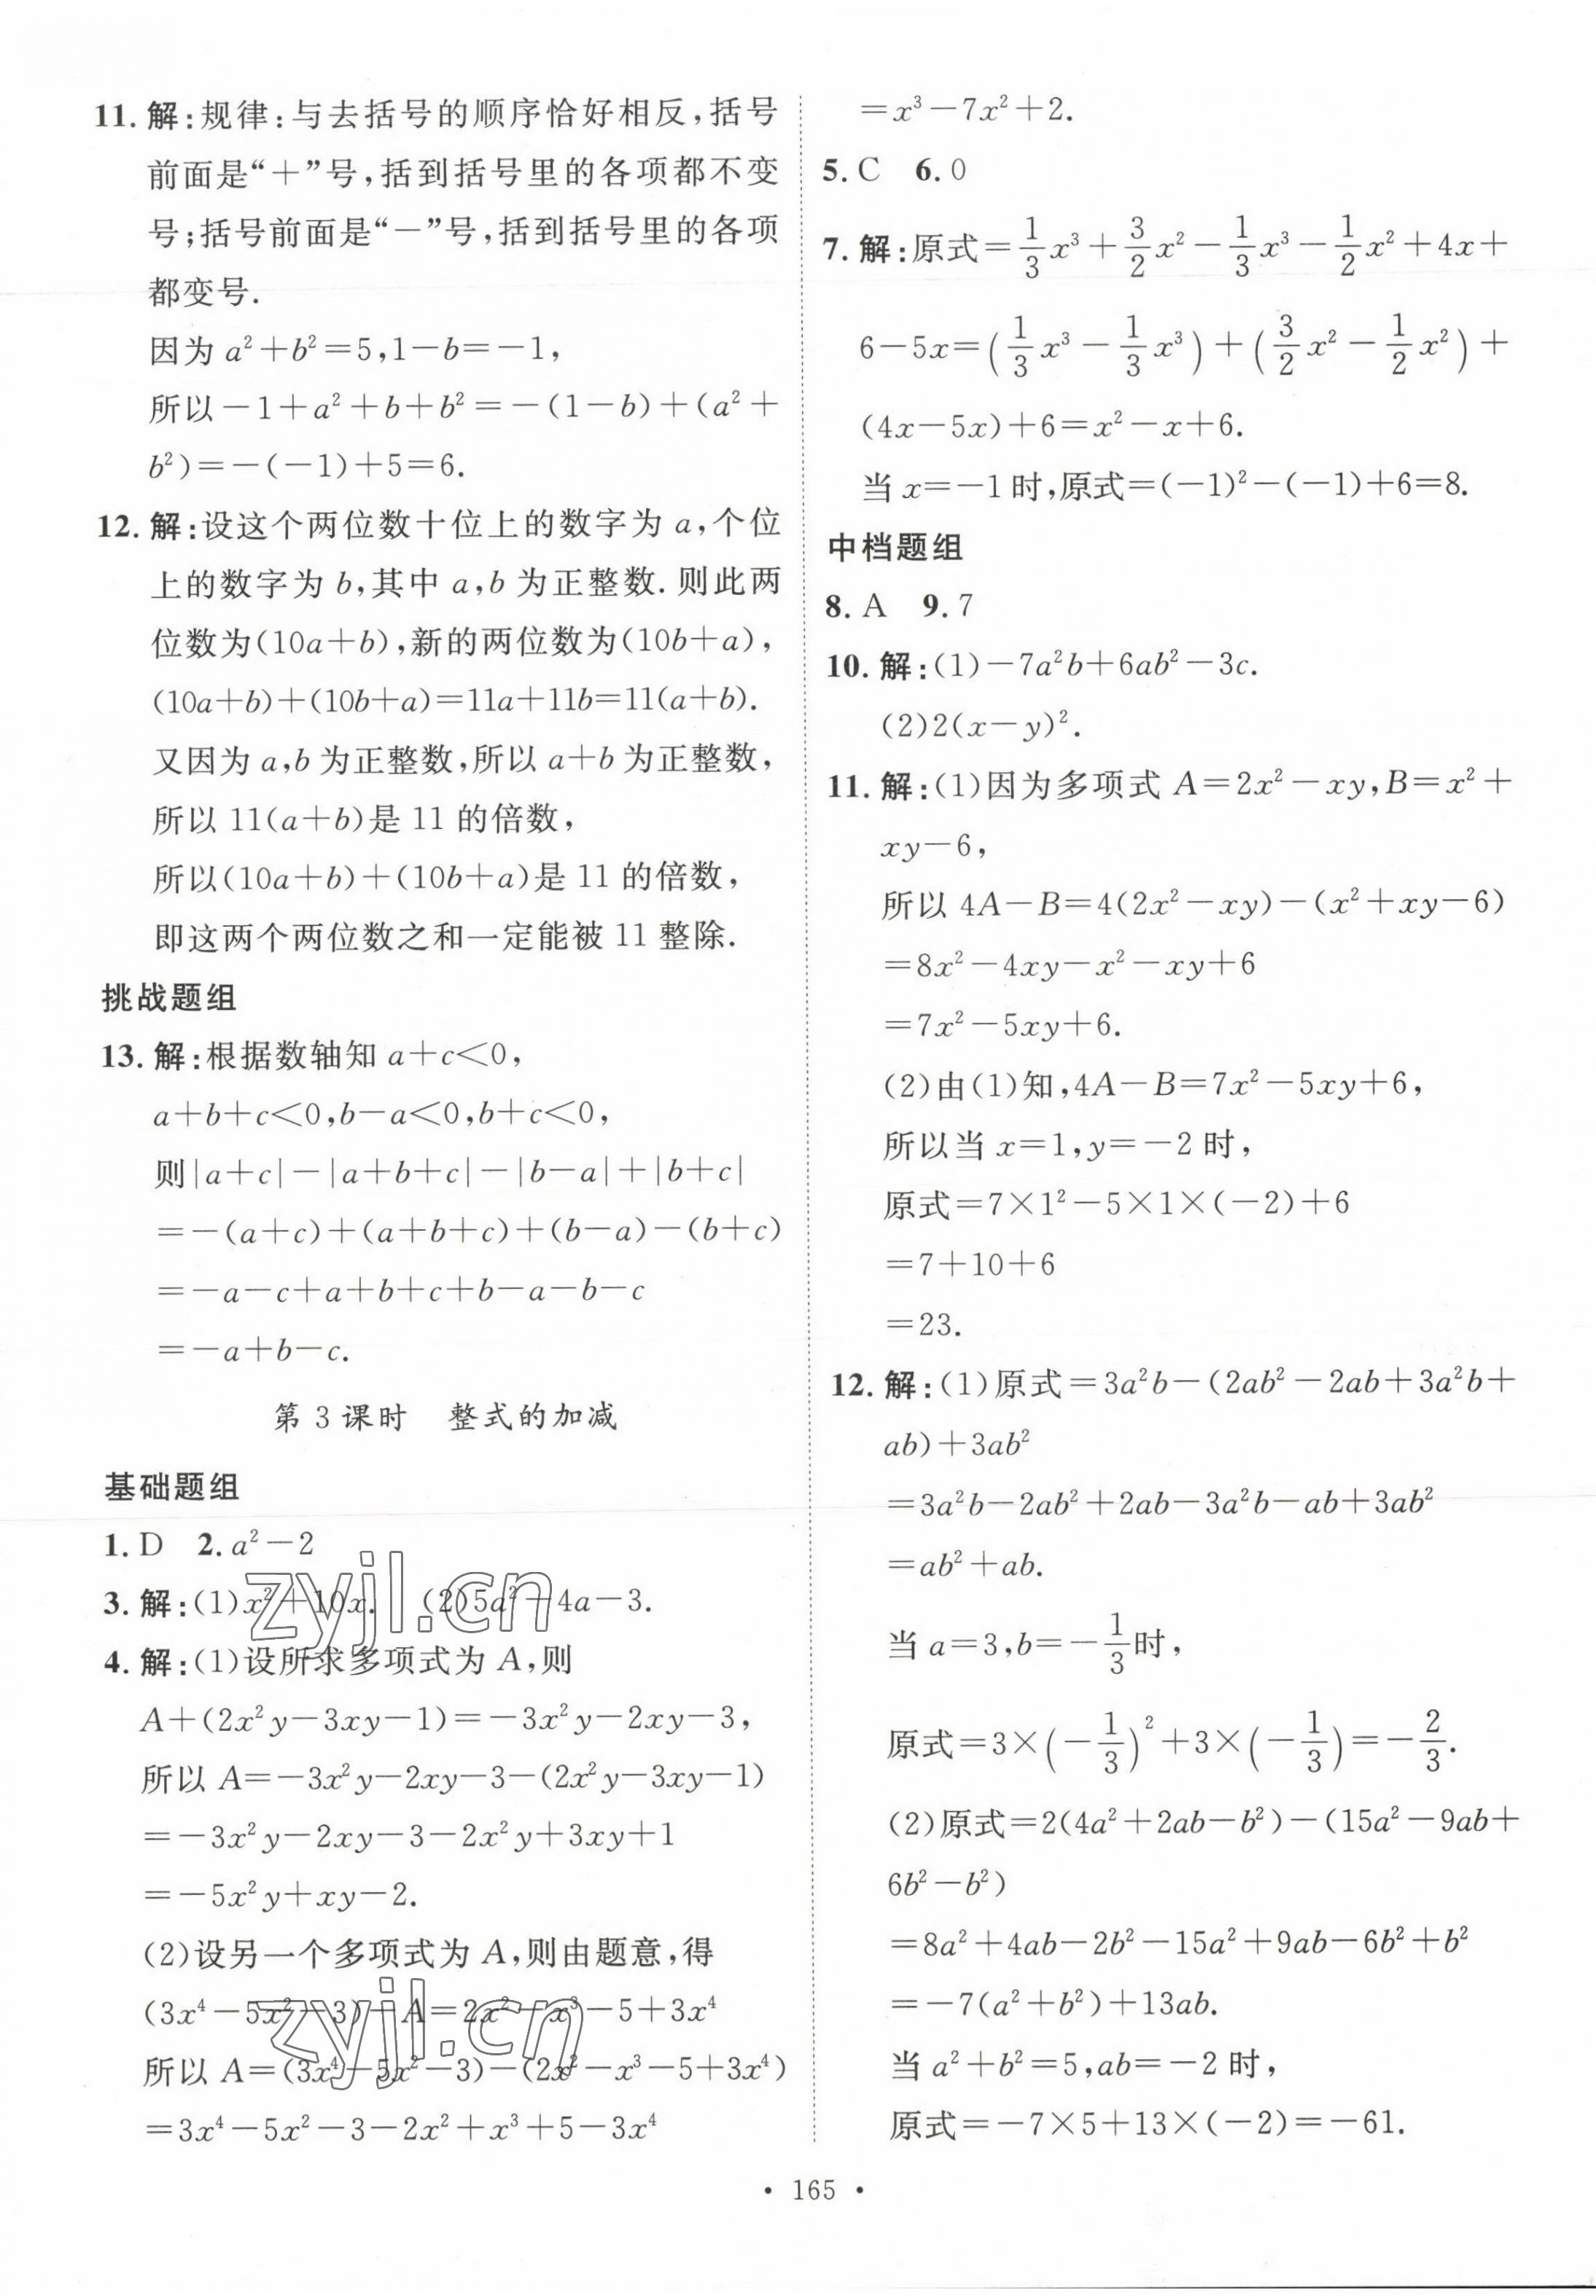 11. 解:规律:与去括号的顺序恰好相反,括号
前面是“+”号,括到括号里的各项都不变
号;括号前面是“-”号,括到括号里的各项
都变号.
因为 a²+b²=5,1-b=-1,
所以-1+a²+b+b²=-(1-b)+(a²+
b²)=-(-1)+5=6.
12. 解:设这个两位数十位上的数字为 a,个位
上的数字为 b,其中 a,b 为正整数.则此两
位数为(10a+b),新的两位数为(10b+a),
(10a+b)+(10b+a)=11a+11b=11(a+b).
又因为 a,b 为正整数,所以 a+b 为正整数,
所以 11(a+b)是 11 的倍数,
所以(10a+b)+(10b+a)是 11 的倍数,
即这两个两位数之和一定能被 11 整除.
挑战题组
13. 解:根据数轴知 a+c<0,
a+b+c<0,b-a<0,b+c<0,
则|a+c|-|a+b+c|-|b-a|+|b+c|
=-(a+c)+(a+b+c)+(b-a)-(b+c)
=-a-c+a+b+c+b-a-b-c
=-a+b-c.
第 3 课时 整式的加减
基础题组
1. D 2. a²-2
3. 解:(1)x²+10x. (2)5a²+4a-3.
4. 解:(1)设所求多项式为 A,则
A+(2x²y-3xy-1)=-3x²y-2xy-3,
所以 A=-3x²y-2xy-3-(2x²y-3xy-1)
=-3x²y-2xy-3-2x²y+3xy+1
=-5x²y+xy-2.
(2)设另一个多项式为 A,则由题意,得
(3x⁴-5x²-3)-A=2x²-x³-5+3x⁴
所以 A=(3x⁴-5x²-3)-(2x²-x³-5+3x⁴)
=3x⁴-5x²-3-2x²+x³+5-3x⁴
=x³-7x²+2.
5. C 6. 0
7. 解:原式=1/3x³+3/2x²-1/3x³-1/2x²+4x+
6-5x=(1/3x³-1/3x³)+(3/2x²-1/2x²)+
(4x-5x)+6=x²-x+6.
当 x=-1 时,原式=(-1)²-(-1)+6=8.
中档题组
8. A 9. 7
10. 解:(1)-7a²b+6ab²-3c.
(2)2(x-y)².
11. 解:(1)因为多项式 A=2x²-xy,B=x²+
xy-6,
所以 4A-B=4(2x²-xy)-(x²+xy-6)
=8x²-4xy-x²-xy+6
=7x²-5xy+6.
(2)由(1)知,4A-B=7x²-5xy+6,
所以当 x=1,y=-2 时,
原式=7×1²-5×1×(-2)+6
=7+10+6
=23.
12. 解:(1)原式=3a²b-(2ab²-2ab+3a²b+
ab)+3ab²
=3a²b-2ab²+2ab-3a²b-ab+3ab²
=ab²+ab.
当 a=3,b=-1/3时,
原式=3×(-1/3)²+3×(-1/3)=-2/3.
(2)原式=2(4a²+2ab-b²)-(15a²-9ab+
6b²-b²)
=8a²+4ab-2b²-15a²+9ab-6b²+b²
=-7(a²+b²)+13ab.
当 a²+b²=5,ab=-2 时,
原式=-7×5+13×(-2)=-61.
• 165 •
zyjl.cn
zyjl.cn